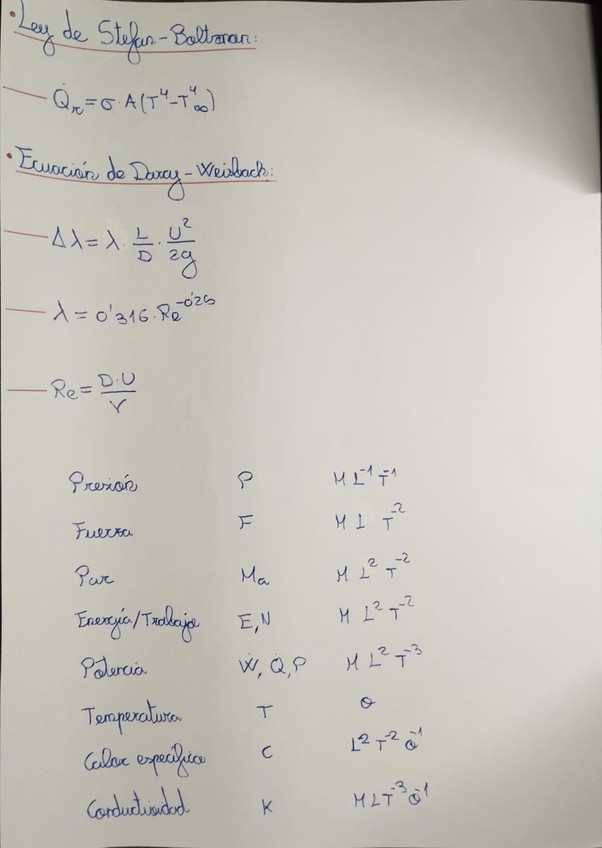 • Ley de Stefan-Boltzman:
Q̇r = σ·A(T⁴-T⁴∞)
• Ecuación de Darcy-Weisbach:
Δλ = λ · L/D · U²/2g
λ = 0'316·Re^-0'25
Re = D·U/ν
Presión P M L⁻¹ T⁻¹
Fuerza F M L T⁻²
Par Ma M L² T⁻²
Energía/Trabajo E, N M L² T⁻²
Potencia Ẇ, Q̇, P M L² T⁻³
Temperatura T θ
Calor específico C L² T⁻² θ⁻¹
Conductividad K M L T⁻³ θ⁻¹